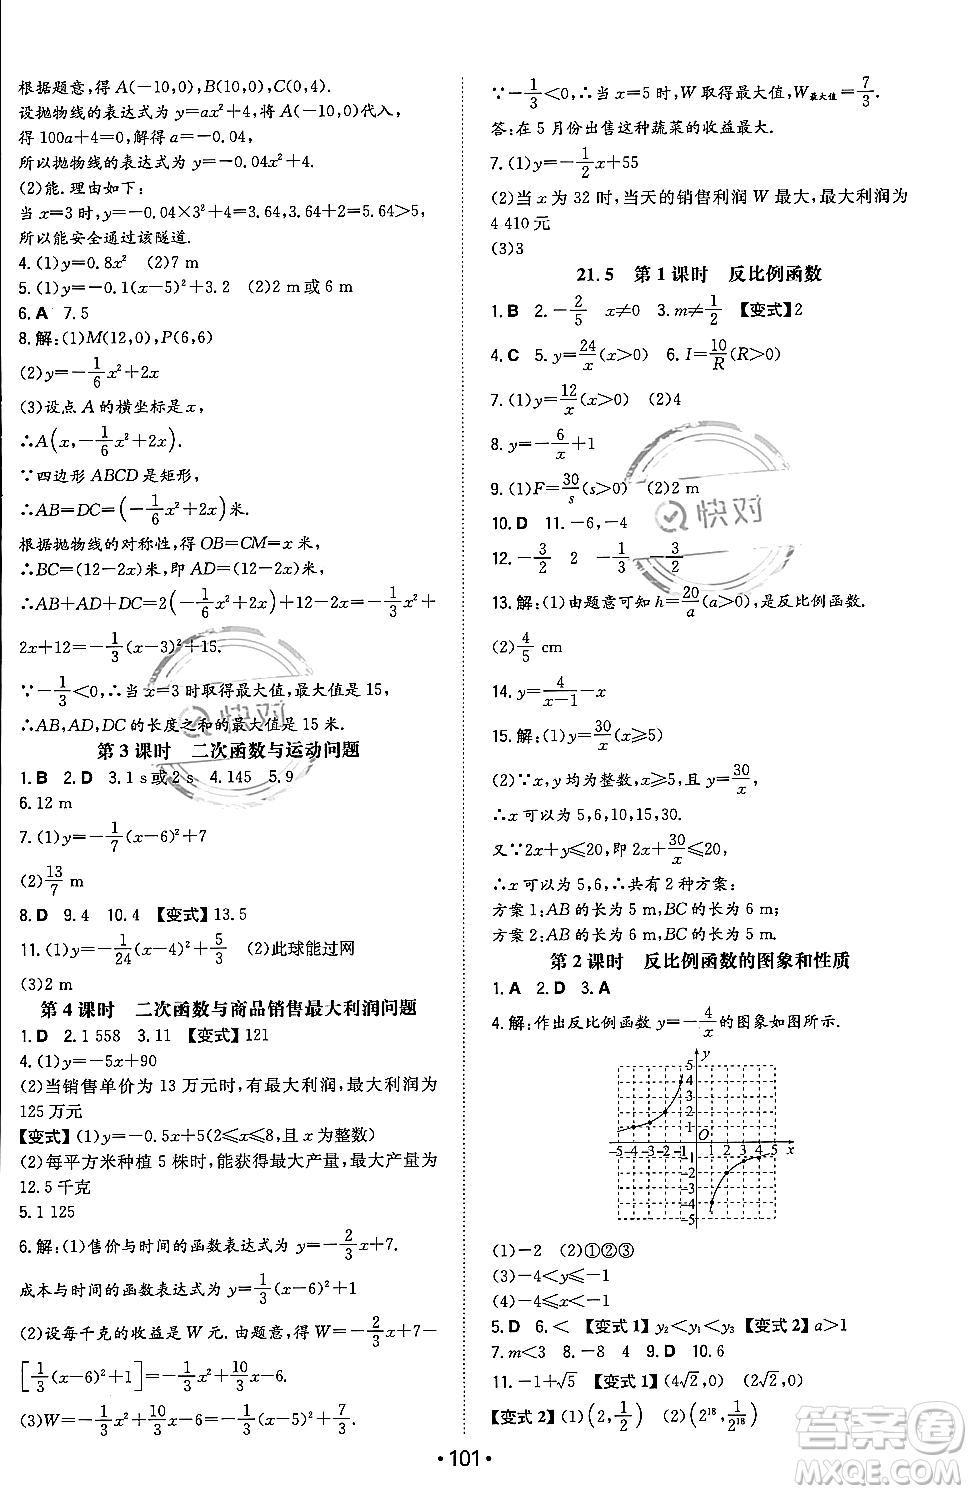 根据题意,得 A(-10,0),B(10,0),C(0,4).
设抛物线的表达式为 y=ax²+4,将 A(-10,0)代入,
得 100a+4=0,解得 a=-0.04,
所以抛物线的表达式为 y=-0.04x²+4.
(2)能.理由如下:
当 x=3 时,y=-0.04×3²+4=3.64,3.64+2=5.64>5,
所以能安全通过该隧道.
4.(1)y=0.8x² (2)7 m
5.(1)y=-0.1(x-5)²+3.2 (2)2 m或6 m
6.A 7.5
8.解:(1)M(12,0),P(6,6)
(2)y=-1/6x²+2x
(3)设点 A 的横坐标是 x,
∴A(x,-1/6x²+2x).
∵四边形 ABCD 是矩形,
∴AB=DC=(-1/6x²+2x)米.
根据抛物线的对称性,得 OB=CM=x 米,
∴BC=(12-2x)米,即 AD=(12-2x)米,
∴AB+AD+DC=2(-1/6x²+2x)+12-2x=-1/3x²+
2x+12=-1/3(x-3)²+15.
∵-1/3<0,∴当 x=3 时取得最大值,最大值是 15,
∴AB,AD,DC 的长度之和的最大值是 15 米.
第 3 课时 二次函数与运动问题
1.B 2.D 3.1 s或2 s 4.145 5.9
6.12 m
7.(1)y=-1/7(x-6)²+7
(2)13/7 m
8.D 9.4 10.4 【变式】13.5
11.(1)y=-1/24(x-4)²+5/3 (2)此球能过网
(3)2 m
第 4 课时 二次函数与商品销售最大利润问题
1.D 2.1 558 3.11 【变式】121
4.(1)y=-5x+90
(2)当销售单价为 13 万元时,有最大利润,最大利润为
125 万元
【变式】(1)y=-0.5x+5(2⩽x⩽8,且 x 为整数)
(2)每平方米种植 5 株时,能获得最大产量,最大产量为
12.5 千克
5.1 125
6.解:(1)售价与时间的函数表达式为 y=-2/3x+7.
成本与时间的函数表达式为 y=1/3(x-6)²+1
(2)设每千克的收益是 W 元.由题意,得 W=-2/3x+7-
[1/3(x-6)²+1]
(3)W=-1/3x²+10/3x-6=-1/3(x-5)²+7/3.
∵-1/3<0,∴当 x=5 时,W 取得最大值,W最大值=7/3.
答:在 5 月份出售这种蔬菜的收益最大.
7.(1)y=-1/2x+55
(2)当 x 为 32 时,当天的销售利润 W 最大,最大利润为
4 410元
(3)3
21.5 第 1 课时 反比例函数
1.B 2.-2/5 x≠0 3.m≠1/2 【变式】2
4.C 5.y=24/x(x>0) 6.I=10/R(R>0)
7.(1)y=12/x(x>0) (2)4
8.y=-6/x+1
9.(1)F=30/s(s>0) (2)2 m
10.D 11.-6,-4
12.-3/2 2 -1/3 -3/2
13.解:(1)由题意可知 h=20/a(a>0),是反比例函数.
(2)4/5 cm
14.y=4/(x-1)-x
15.解:(1)y=30/x(x⩾5)
(2)∵x,y 均为整数,x⩾5,y=30/x,
∴x 可以为 5,6,10,15,30.
又∵2x+y⩽20,即 2x+30/x⩽20,
∴x 可以为 5,6,∴共有 2 种方案:
方案 1:AB 的长为 5 m,BC 的长为 6 m;
方案 2:AB 的长为 6 m,BC 的长为 5 m.
第 2 课时 反比例函数的图象和性质
1.A 2.D 3.A
4.解:作出反比例函数 y=-4/x 的图象如图所示.
y
5
4
3
2
1
O
-5-4-3-2-1 1 2 3 4 5 x
-1
-2
-3
-4
-5
(1)-2 (2)①②③
(3)-4<y⩽-1
(4)-4⩽x<-1
5.D 6.< 【变式 1】y₂<y₁<y₃ 【变式 2】a>1
7.m<3 8.-8 4 9.D 10.6
11.-1+√5 【变式 1】(4√2,0) (2√2,0)
【变式 2】(1)(2,1/2) (2)(2¹⁸,1/2¹⁸)
·101·
快对
快对
答案圈
MXQE.COM